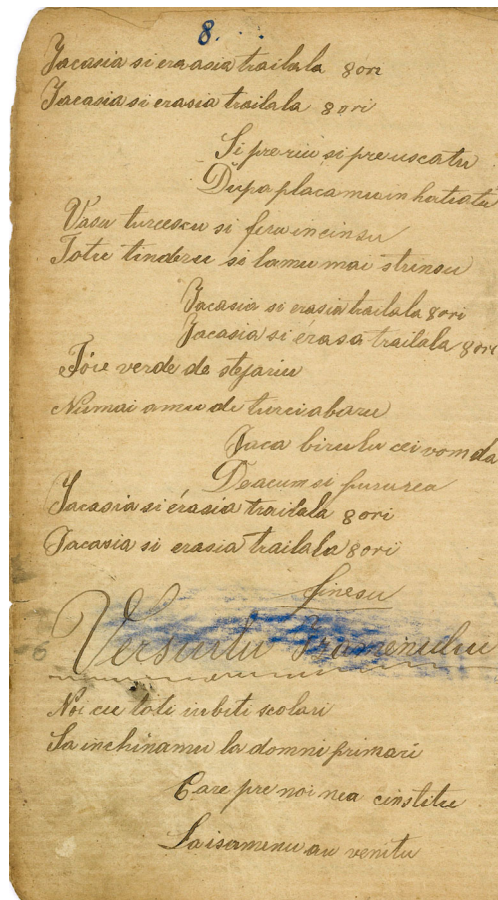 8. . . .
Jacasia si era asia trailala 8 ori
Jacasia si erasia trailala 8 ori
Si pre riu si pre uscatu
Dupa placa mu in hatiatu
Vasu turcescu si feru incinsu
Totu tinderu si lamu mai strinsu
Jacasia si erasia trailala 8 ori
Jacasia si érasa trailala 8 ori
Fóie verde de stejariu
Numai amu de turci abaru
Jaca birulu cei vom da
Deacum si pururea
Jacasia si érasia trailala 8 ori
Jacasia si erasia trailala 8 ori
finesu
Versiulu Irumenului
Noi cu toti iubiti scolari
Sa inchinamu la domni primari
Care pre noi nea cinstitu
La isermenu au venitu